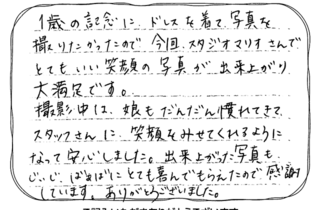 1歳の記念に、ドレスを着て写真を
撮りたかったので、今回、スタジオマリオさんで
とてもいい笑顔の写真が出来上がり
大満足です。
撮影中は、娘もだんだん慣れてきて
スタッフさんに、笑顔をみせてくれるように
なって安心しました。出来上がった写真も
じぃじ、ばぁばにとても喜んでもらえたので感謝
しています。ありがとうございました。